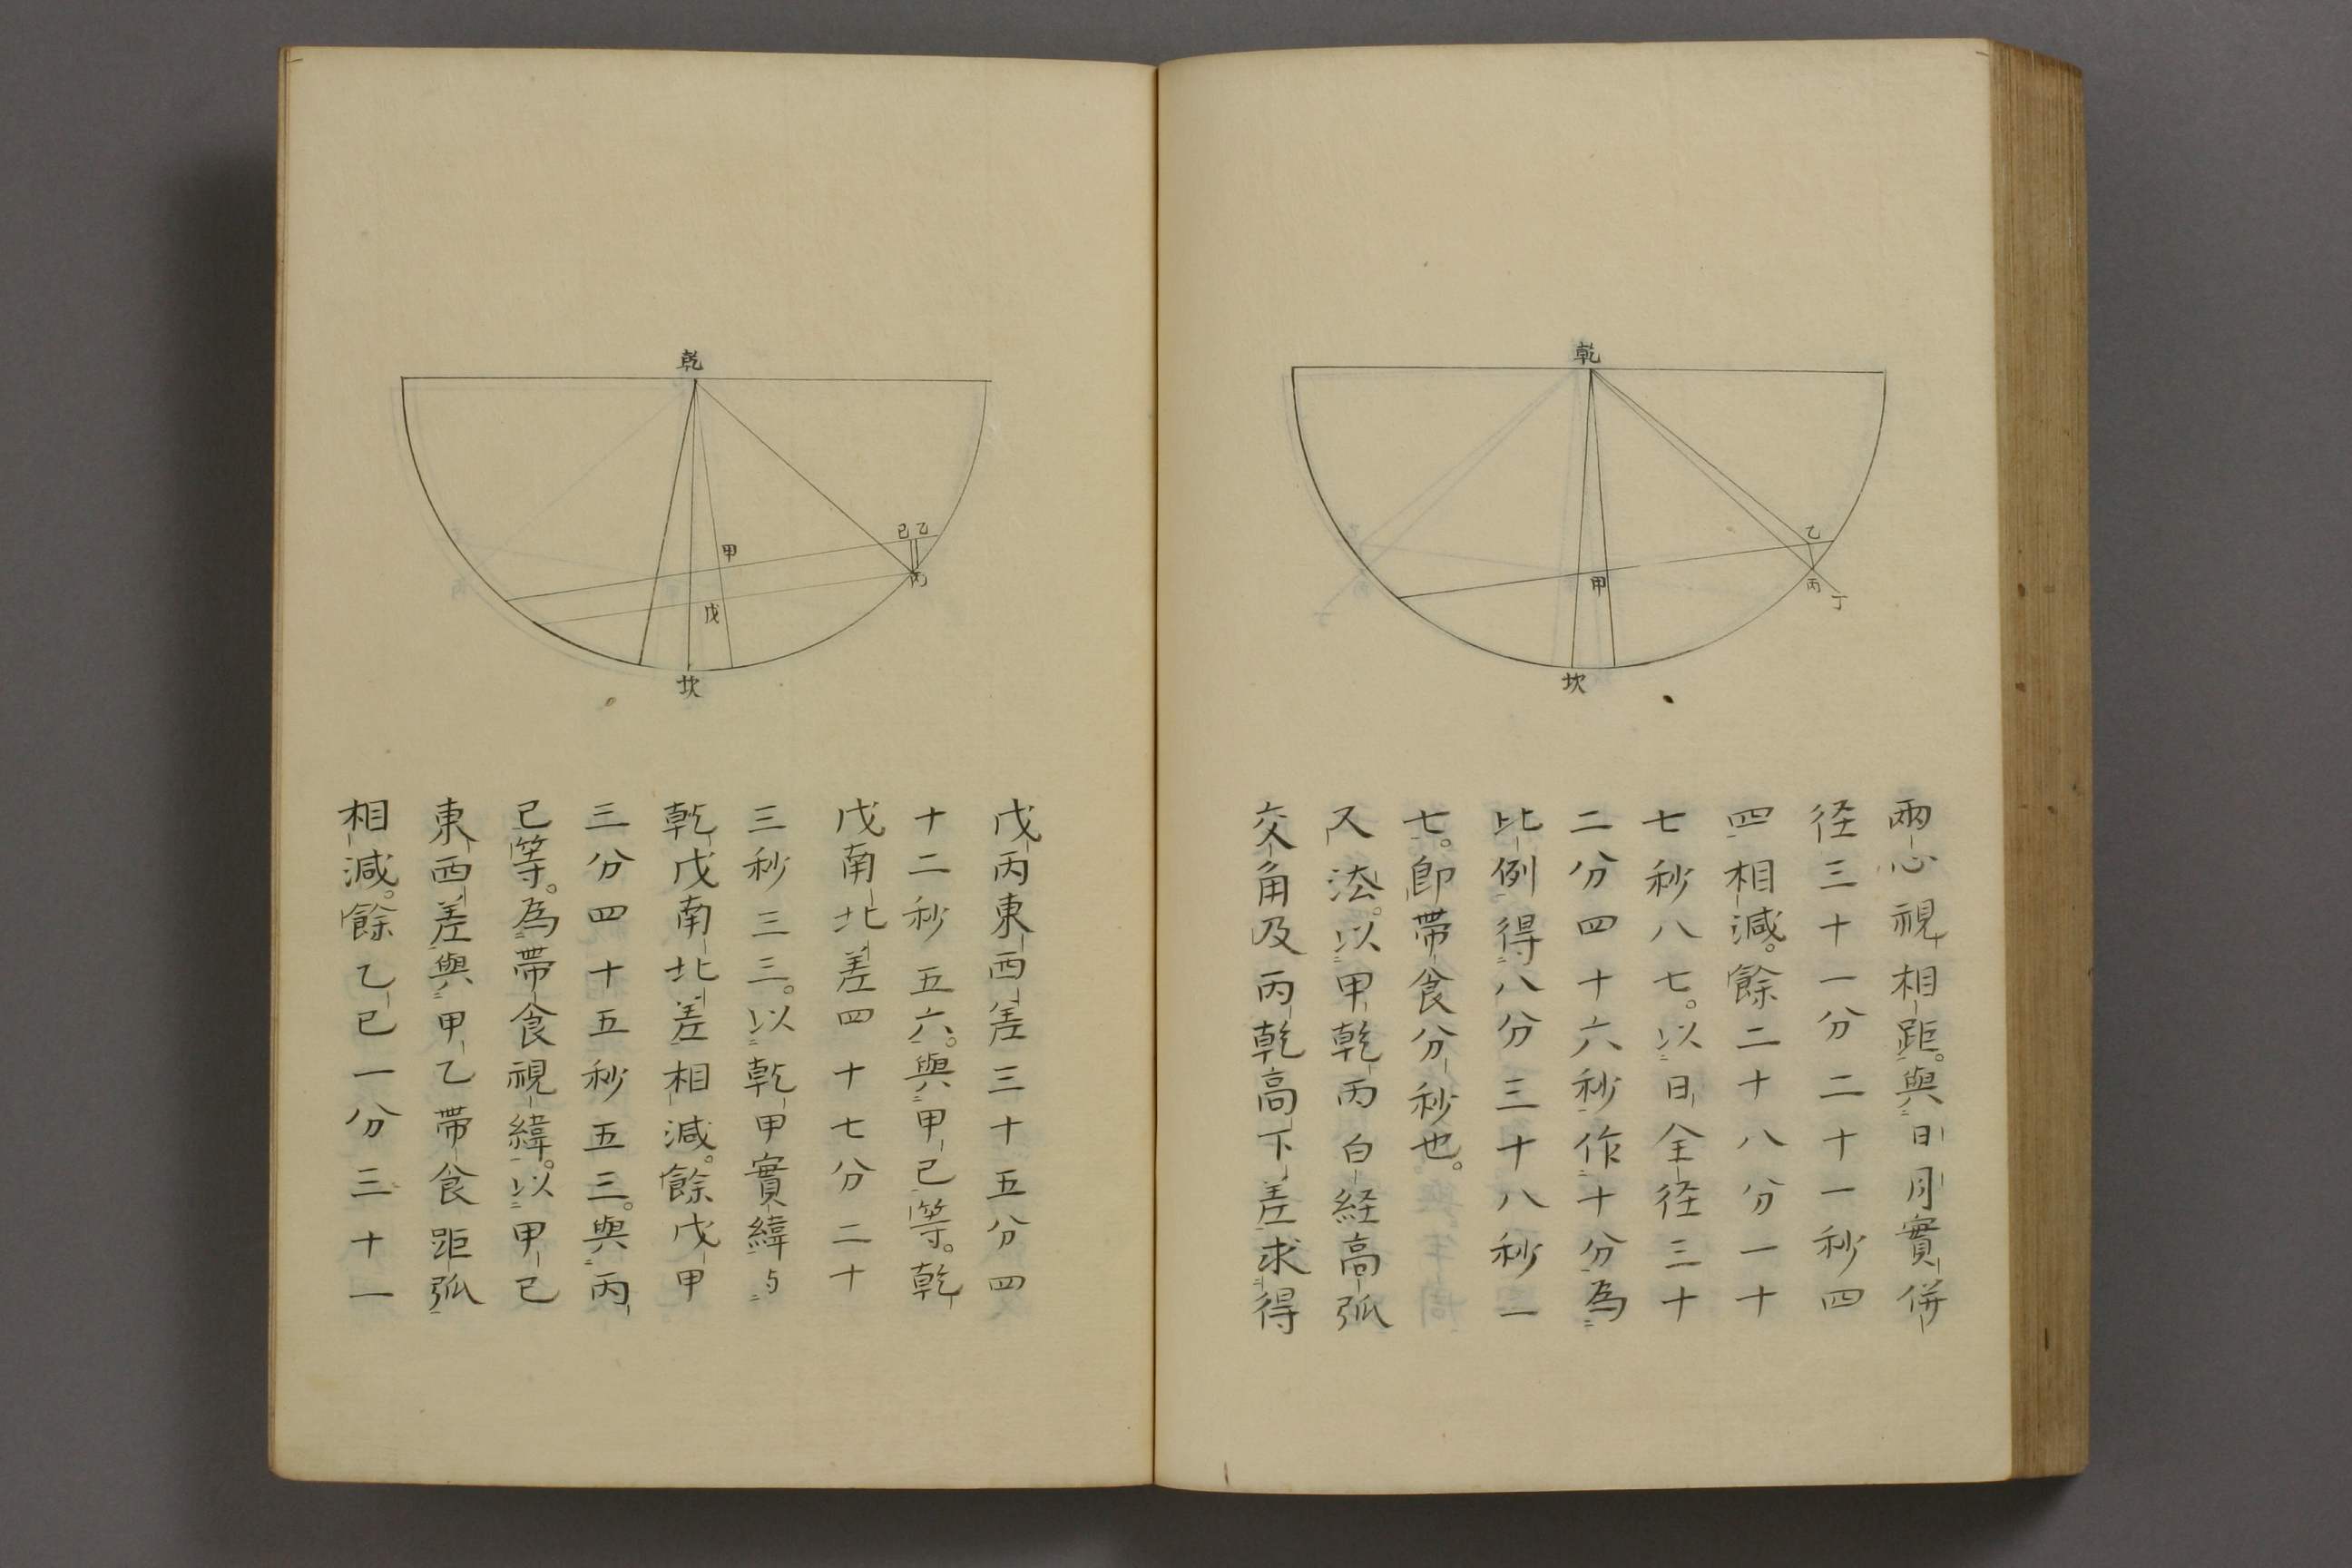 乾
乙
甲
丙
丁
坎
兩心視相距。與日月實併
径三十一分二十一秒四
四相減。餘二十八分一十
七秒八七。以日全径三十
二分四十六秒作十分為
比例得八分三十八秒一
七。即帶食分秒也。
又法。以甲乾丙白経高弧
交角及丙乾高下差求得
乾
己乙
甲
丙
戊
坎
戊丙東西差三十五分四
十二秒五六。與甲己等。乾
戊南北差四十七分二十
三秒三三。以乾甲實緯与
乾戊南北差相減。餘戊甲
三分四十五秒五三。與丙
己等。為帶食視緯。以甲己
東西差與甲乙帶食距弧
相減。餘乙己一分三十一